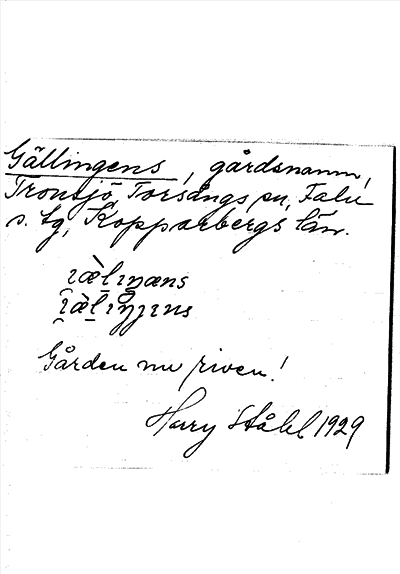 Gällingens, gårdsnamn,
Tronsjö, Torsångs sn, Falu
s. tg, Kopparbergs län.
Gården nu riven!
Harry Ståhl 1929